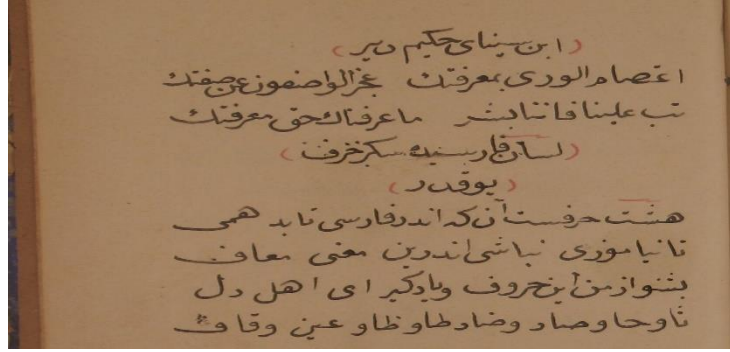 (ابن سینای حکیم دیر)
اعتصام الوری بمعرفتك عجز الواصفون عن صفتك
تب علینا فاننا بشر ما عرفناك حق معرفتك
(لسان فارسیده سکز حرف)
(یوقدر)
هشت حرفست آن که اندر فارسی ناید همی
تا نیاموزی نباشی اندرین معنی معاف
بشنو از من این حروف و یاد کیر ای اهل دل
ثا و حا و صاد و ضاد طا و ظا و عین و قاف